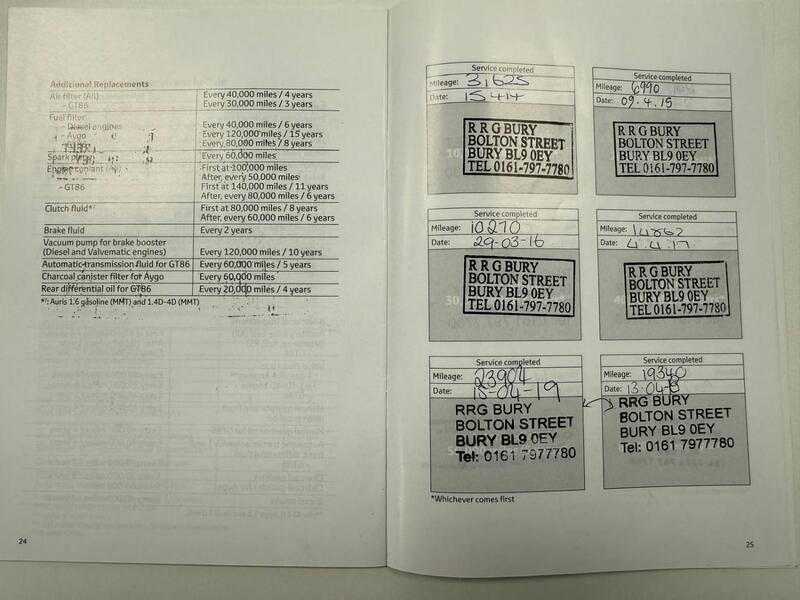 Additional Replacements
Air filter (All) Every 40,000 miles / 4 years
- GT86 Every 30,000 miles / 3 years
Fuel filter
- Diesel engines Every 40,000 miles / 6 years
- Aygo Every 120,000 miles / 15 years
Every 80,000 miles / 8 years
Spark Every 60,000 miles
Engine coolant (All) First at 100,000 miles
After, every 50,000 miles
- GT86 First at 140,000 miles / 11 years
After, every 80,000 miles / 6 years
Clutch fluid*² First at 80,000 miles / 8 years
After, every 60,000 miles / 6 years
Brake fluid Every 2 years
Vacuum pump for brake booster
(Diesel and Valvematic engines) Every 120,000 miles / 10 years
Automatic transmission fluid for GT86 Every 60,000 miles / 5 years
Charcoal canister filter for Aygo Every 60,000 miles
Rear differential oil for GT86 Every 20,000 miles / 4 years
*²: Auris 1.6 gasoline (MMT) and 1.4D-4D (MMT)
24
Service completed
Mileage: 3,625
Date: 15 4 14
R R G BURY
BOLTON STREET
BURY BL9 0EY
TEL 0161-797-7780
Service completed
Mileage: 6990
Date: 09.4.15
R R G BURY
BOLTON STREET
BURY BL9 0EY
TEL 0161-797-7780
Service completed
Mileage: 10270
Date: 29-03-16
R R G BURY
BOLTON STREET
BURY BL9 0EY
TEL 0161-797-7780
Service completed
Mileage: 14862
Date: 4.4.17
R R G BURY
BOLTON STREET
BURY BL9 0EY
TEL 0161-797-7780
Service completed
Mileage: 23904
Date: 15-04-19
RRG BURY
BOLTON STREET
BURY BL9 0EY
Tel: 0161 7977780
Service completed
Mileage: 19340
Date: 13-04-18
RRG BURY
BOLTON STREET
BURY BL9 0EY
Tel: 0161 7977780
*Whichever comes first
25